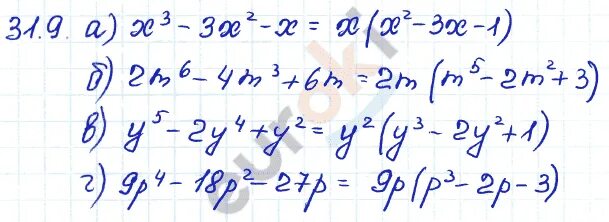 31.9. а) x³ - 3x² - x = x(x² - 3x - 1)
б) 2m⁶ - 4m³ + 6m = 2m(m⁵ - 2m² + 3)
в) y⁵ - 2y⁴ + y² = y²(y³ - 2y² + 1)
г) 9p⁴ - 18p² - 27p = 9p(p³ - 2p - 3)
euroki